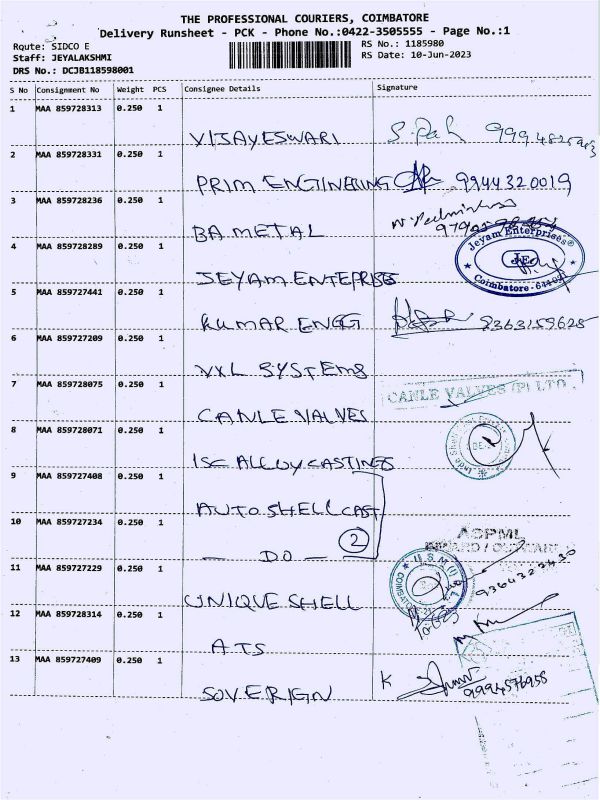 THE PROFESSIONAL COURIERS, COIMBATORE
Delivery Runsheet - PCK - Phone No.:0422-3505555 - Page No.:1
Route: SIDCO E
RS No.: 1185980
Staff: JEYALAKSHMI
RS Date: 10-Jun-2023
DRS No.: DCJB118598001
S No Consignment No Weight PCS Consignee Details Signature
1 MAA 859728313 0.250 1
VIJAYESWARI
2 MAA 859728331 0.250 1
PRIM ENGINEERING 9944320019
3 MAA 859728236 0.250 1
BA METAL
4 MAA 859728289 0.250 1
Jeyam Enterprises
JE
Coimbatore
JEYAM ENTEPRISES
5 MAA 859727441 0.250 1
KUMAR ENGG 9363159625
6 MAA 859727209 0.250 1
VXL SYSTEMS
7 MAA 859728075 0.250 1
CANLE VALVES (P) LTD.
CANLE VALVES
8 MAA 859728071 0.250 1
ISC ALLOY CASTINGS
9 MAA 859727408 0.250 1
AUTO SHELL CAST
10 MAA 859727234 0.250 1
— DO — 2
11 MAA 859727229 0.250 1
UNIQUE SHELL
12 MAA 859728314 0.250 1
ATS
13 MAA 859727409 0.250 1
SOVERIGN K